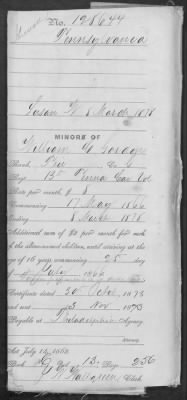 No. 128644
Pennsylvania
Susan G 8 March 1878
MINORS OF
William G
Rank,
Reg't 15" Penna Cav Vol
Rate per month, $ 8
Commencing 17 May 1866
Ending 8 March 1878
Additional sum of $2 per month for each
of the above-named children, until arriving at the
age of 16 years, commencing 25 day
of July 1866
Certificate dated 30 Octo. 1873
and sent 3 Nov 1873
Payable at Philadelphia Agency
Attorney
Act July 14, 1862
Book Vol. 13 Page 256
Clerk